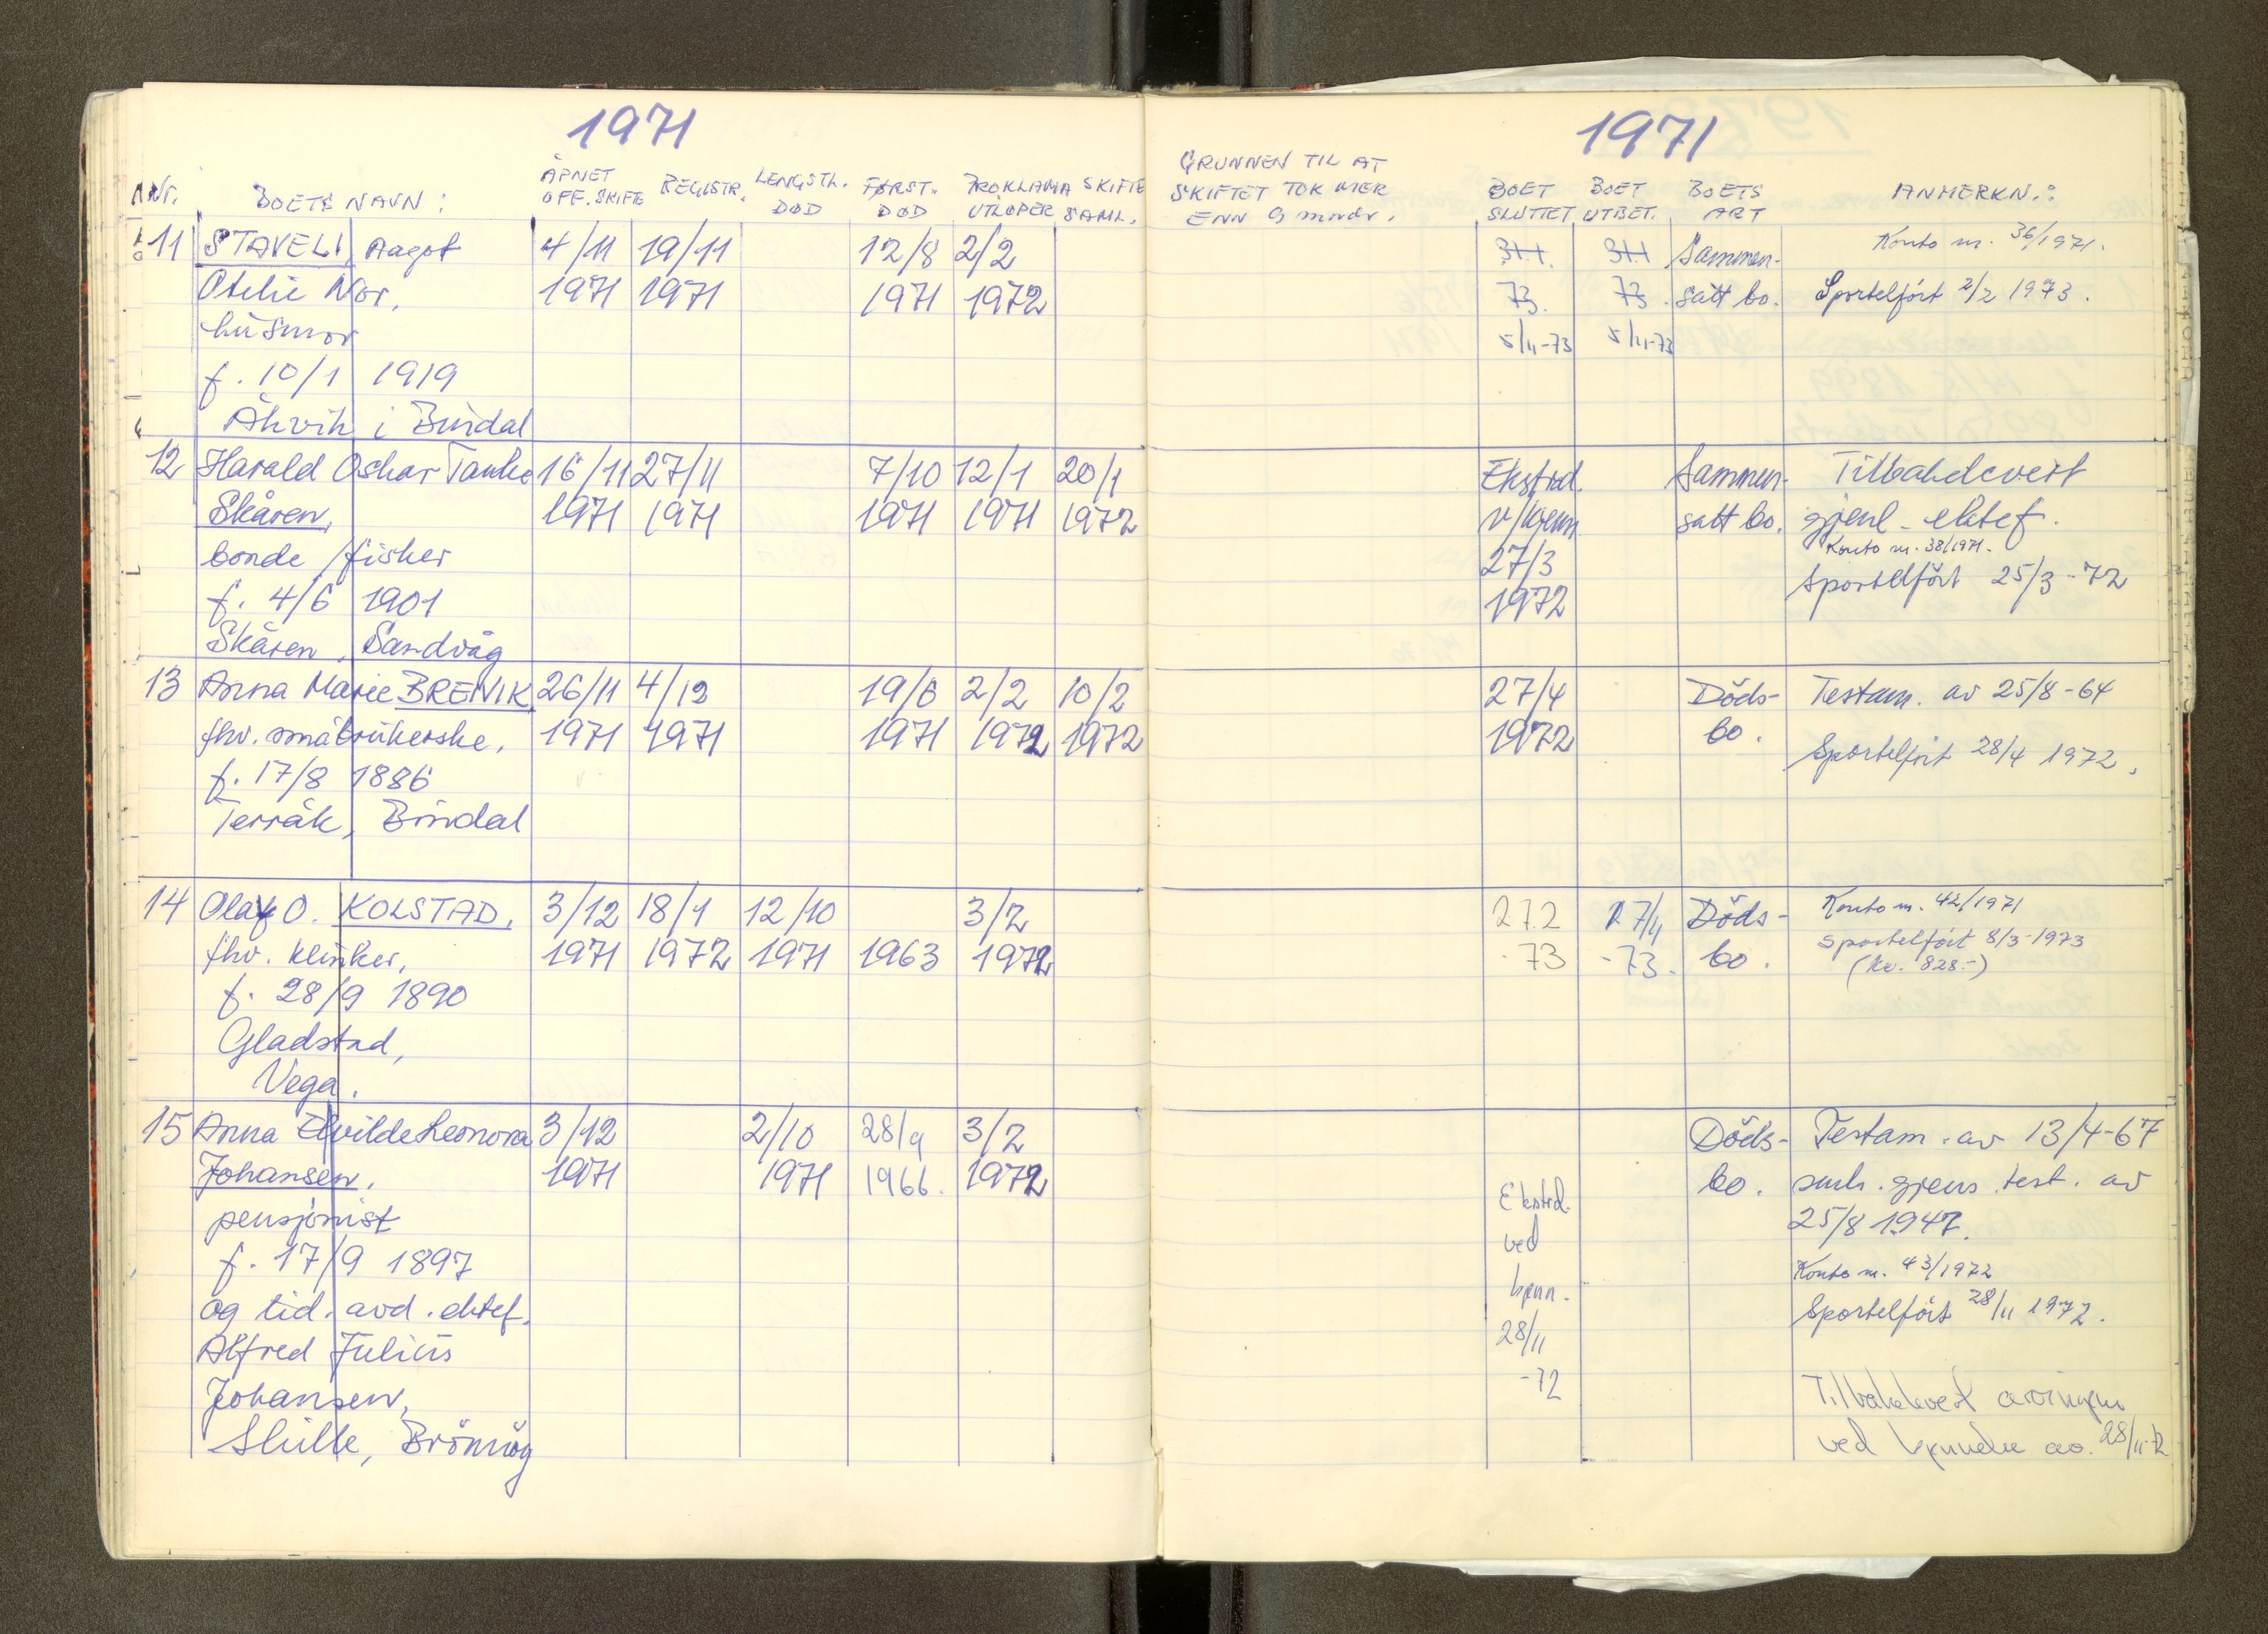 1971
Nr.
BOETS NAVN:
ÅPNET OFF. SKIFTE
REGISTR.
LENGSTL. DØD
FØRST. DØD
PROKLAMA UTLØPER
SKIFTE SAML.
11 STAVELI, Aagot 4/11 19/11 12/8 2/2
Otelie Nor, 1971 1971 1971 1972
husmor
f. 10/1 1919
Åkvik i Bindal
12 Harald Oskar Tanke 16/11 27/11 7/10 12/1 20/1
Skåren, 1971 1971 1971 1971 1972
bonde/fisker
f. 4/6 1901
Skåren, Sandvåg
13 Anna Marie BREIVIK 26/11 4/12 19/6 2/2 10/2
fhv. småbrukerske, 1971 1971 1971 1972 1972
f. 17/8 1886
Terråk, Bindal
14 Olaf O. KOLSTAD, 3/12 18/1 12/10 3/2
fhv. klinker, 1971 1972 1971 1963 1972
f. 28/9 1890
Gladstad,
Vega.
15 Anna Elvilde Leonora 3/12 2/10 28/9 3/2
Johansen, 1971 1971 1966. 1972
pensjonist
f. 17/9 1897
og tid. avd. ektef.
Alfred Julius
Johansen,
Skille, Brönnöy
1971
GRUNNEN TIL AT
SKIFTET TOK MER
ENN 9 mndr.
BOET SLUTTET
BOET UTBET.
BOETS ART
ANMERKN.:
Sammen- Konto nr. 36/1971.
73. 73. satt bo. Sportelført 2/2 1973.
5/11-73 5/11-73
Ekstrad. Sammen- Tilbakelevert
v/kjenn satt bo. gjenl. ektef.
Konto nr. 38/1971.
27/3 Sportelført 25/3-72
1972
27/4 Döds- Testam. av 25/8-64
1972 bo. Sportelført 28/4 1972.
27.2 27/4 Döds- Konto nr. 42/1971
-73 -73. bo. Sportelfört 8/3-1973
(kr. 828.-)
Döds- Testam. av 13/4-67
bo. smh. gjens. test. av
Ekstrd. 25/8 1947.
ved
kjenn. Konto nr. 43/1972
28/11 Sportelfört 28/11 1972.
-72 Tilbakelevert arvingene
ved kjennelse av 28/11-72